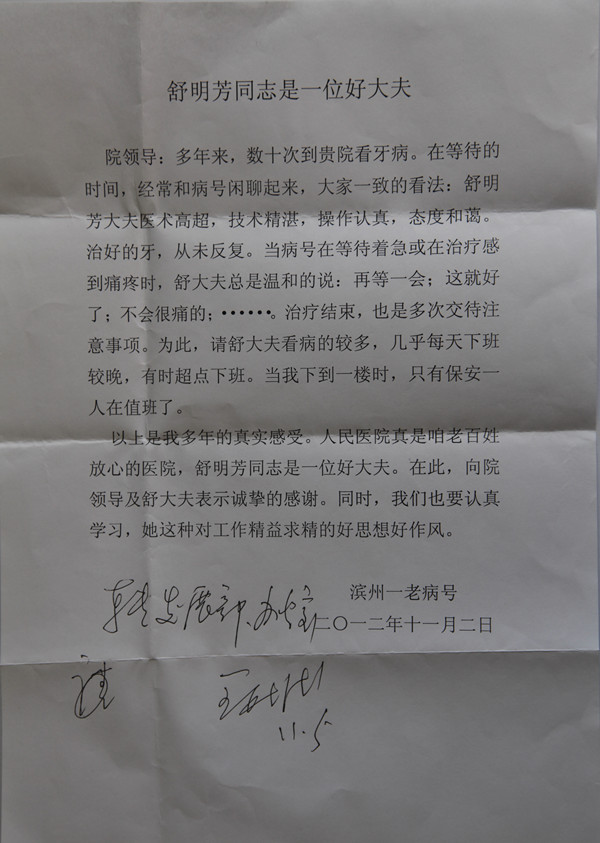 舒明芳同志是一位好大夫
院领导：多年来，数十次到贵院看牙病。在等待的
时间，经常和病号闲聊起来，大家一致的看法：舒明
芳大夫医术高超，技术精湛，操作认真，态度和蔼。
治好的牙，从未反复。当病号在等待着急或在治疗感
到痛疼时，舒大夫总是温和的说：再等一会；这就好
了；不会很痛的；······。治疗结束，也是多次交待注
意事项。为此，请舒大夫看病的较多，几乎每天下班
较晚，有时超点下班。当我下到一楼时，只有保安一
人在值班了。
以上是我多年的真实感受。人民医院真是咱老百姓
放心的医院，舒明芳同志是一位好大夫。在此，向院
领导及舒大夫表示诚挚的感谢。同时，我们也要认真
学习，她这种对工作精益求精的好思想好作风。
滨州一老病号
二〇一二年十一月二日
11.5